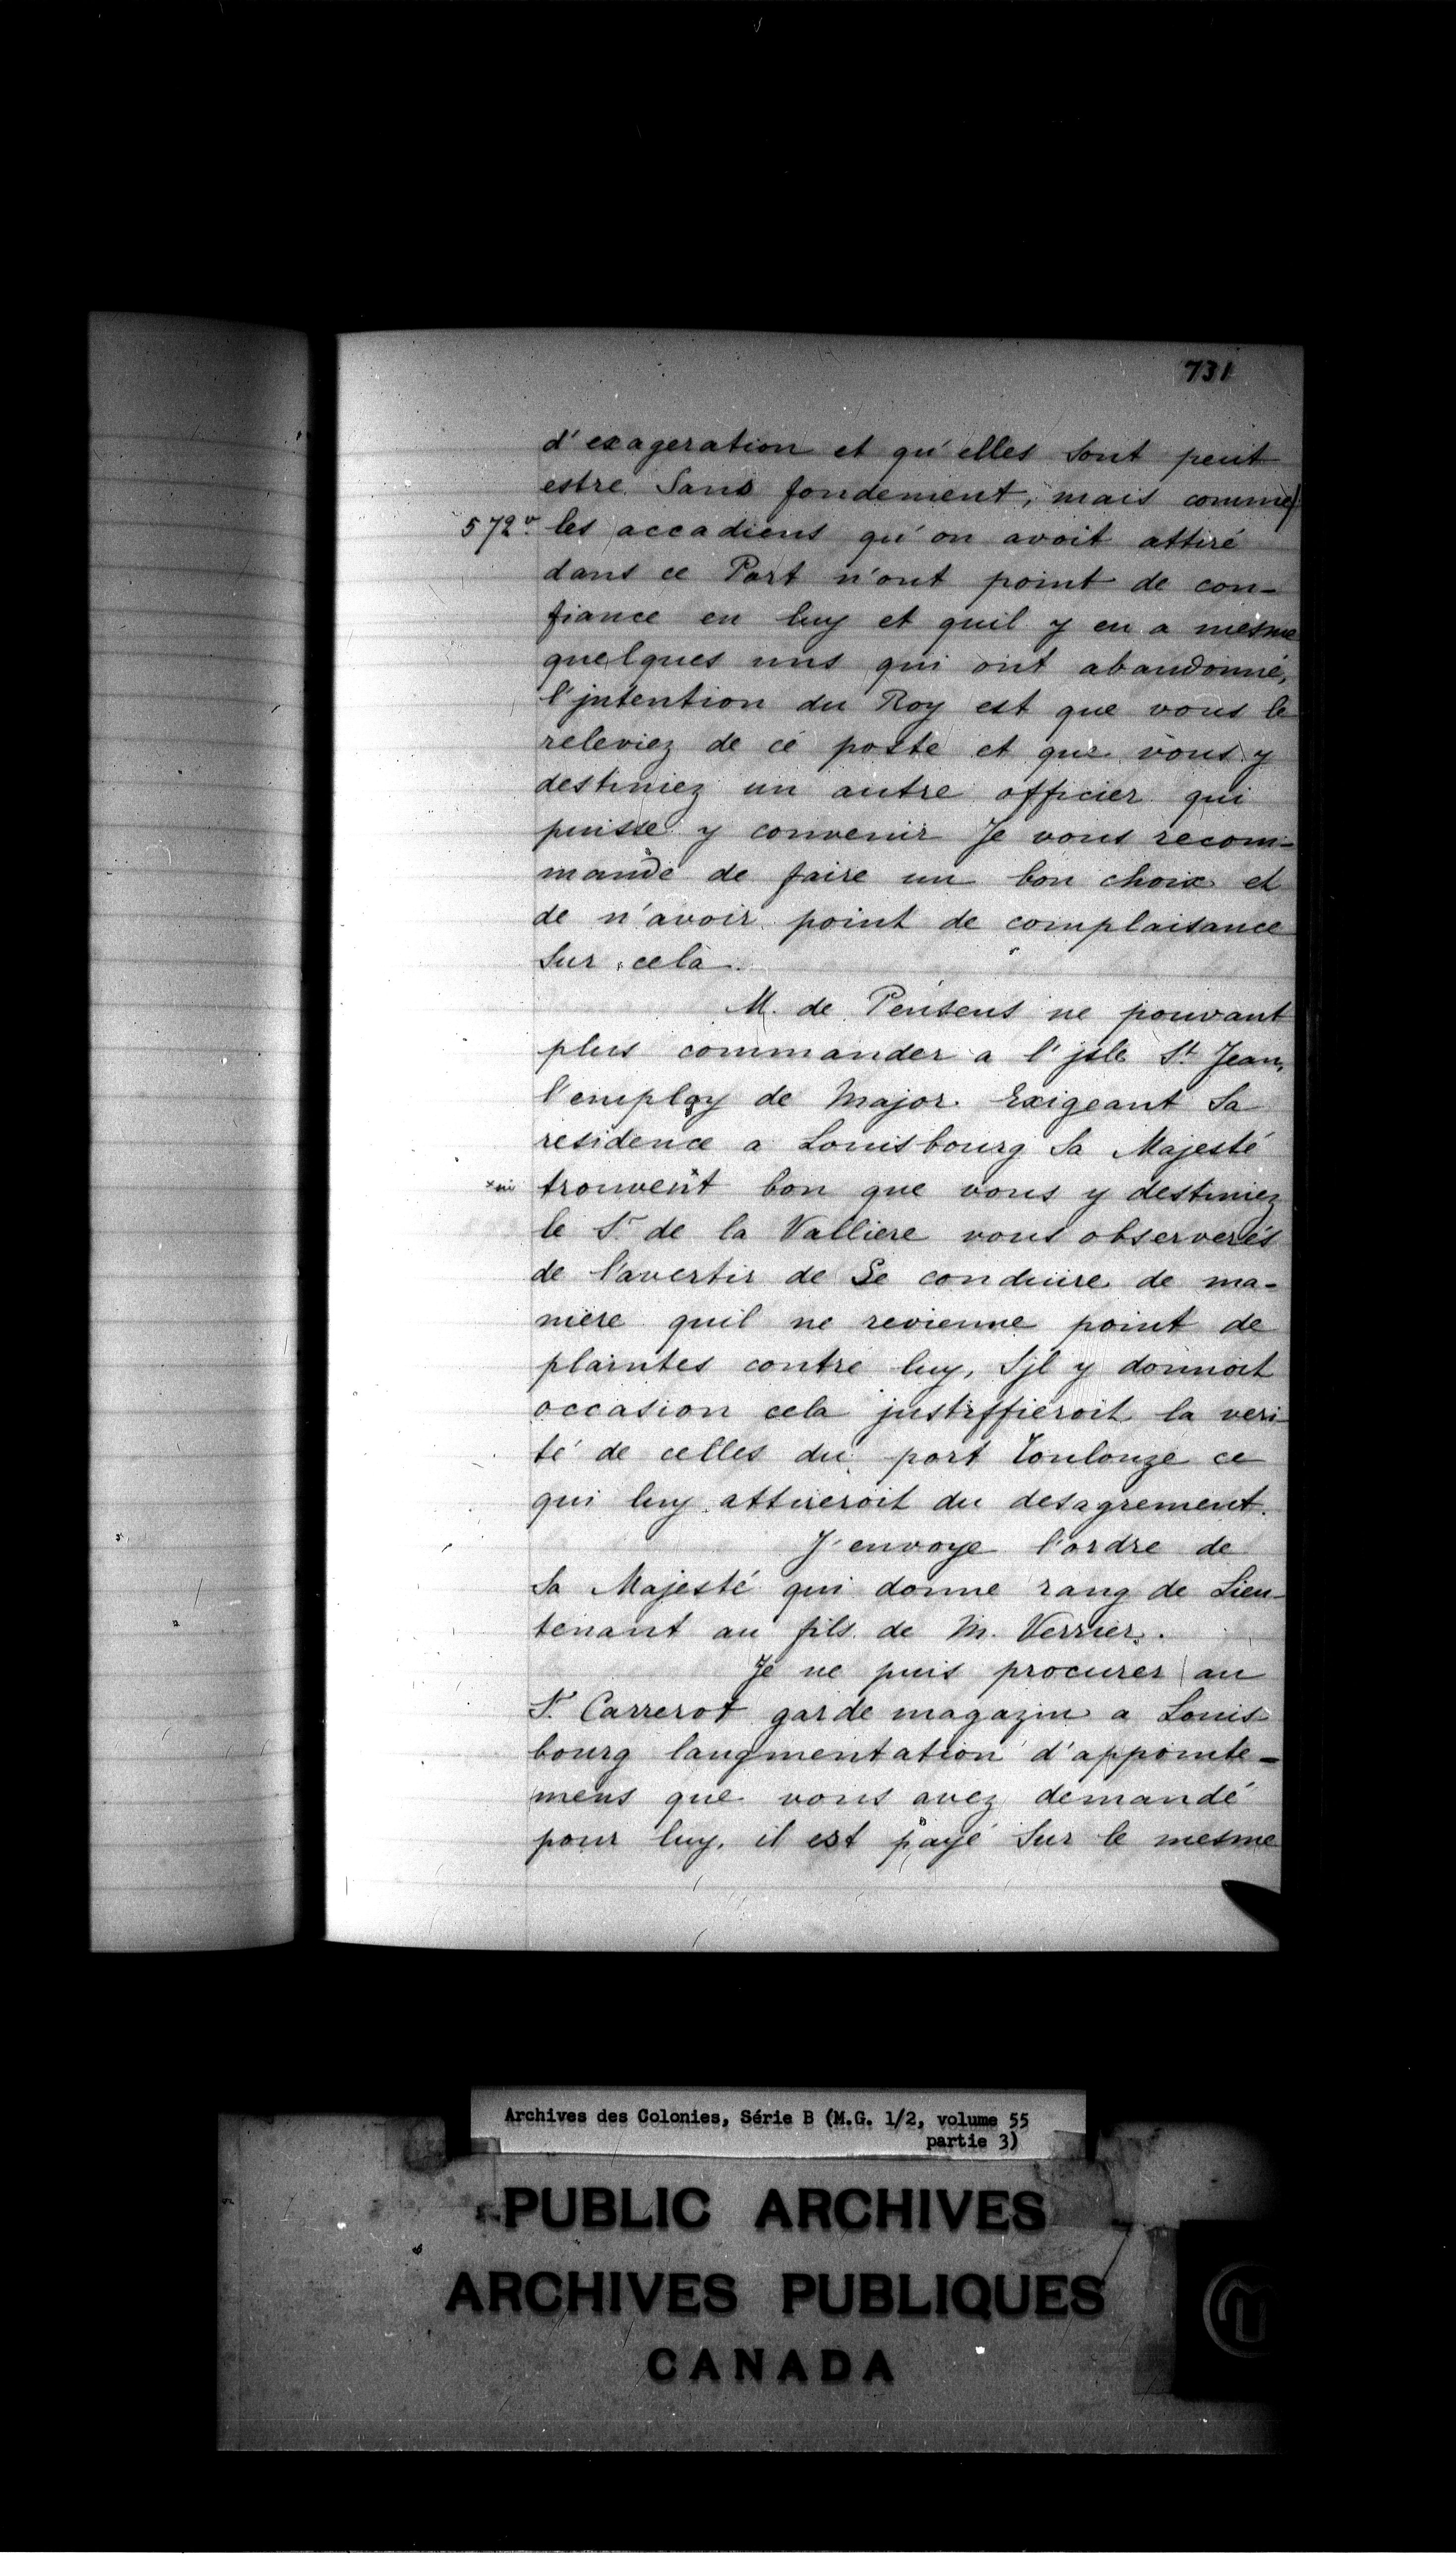 731
d'exageration et qu'elles sont peut
estre sans fondement, mais comme/
572v. les accadiens qu'on avoit attiré
dans ce Port n'ont point de con-
fiance en luy et quil y en a mesme
quelques uns qui ont abandonné,
l'jntention du Roy est que vous le
releviez de ce poste et que vous y
destiniez un autre officier qui
puisse y convenir Je vous recom-
mande de faire un bon choix et
de n'avoir point de complaisance
sur cela.
M. de Pensens ne pouvant
plus commander a l'jsle St Jean,
l'employ de Major Exigeant sa
residence a Louisbourg Sa Majesté
trouvent bon que vous y destiniez
le Sr de la Valliere vous observerés
de l'avertir de se conduire de ma-
niere quil ne revienne point de
plaintes contre luy, Sjl y donnoit
occasion cela justiffieroit la veri
té de celles du port Toulouze ce
qui luy attireroit du desagrement.
J'envoye l'ordre de
Sa Majesté qui donne rang de Lieu-
tenant au fils de M. Verrier.
Je ne puis procurer au
Sr Carrerot garde magazin a Louis-
bourg laugmentation d'appointe-
mens que vous avez demandé
pour luy, il est payé sur le mesme
Archives des Colonies, Série B (M.G. 1/2, volume 55
partie 3)
PUBLIC ARCHIVES
ARCHIVES PUBLIQUES
CANADA